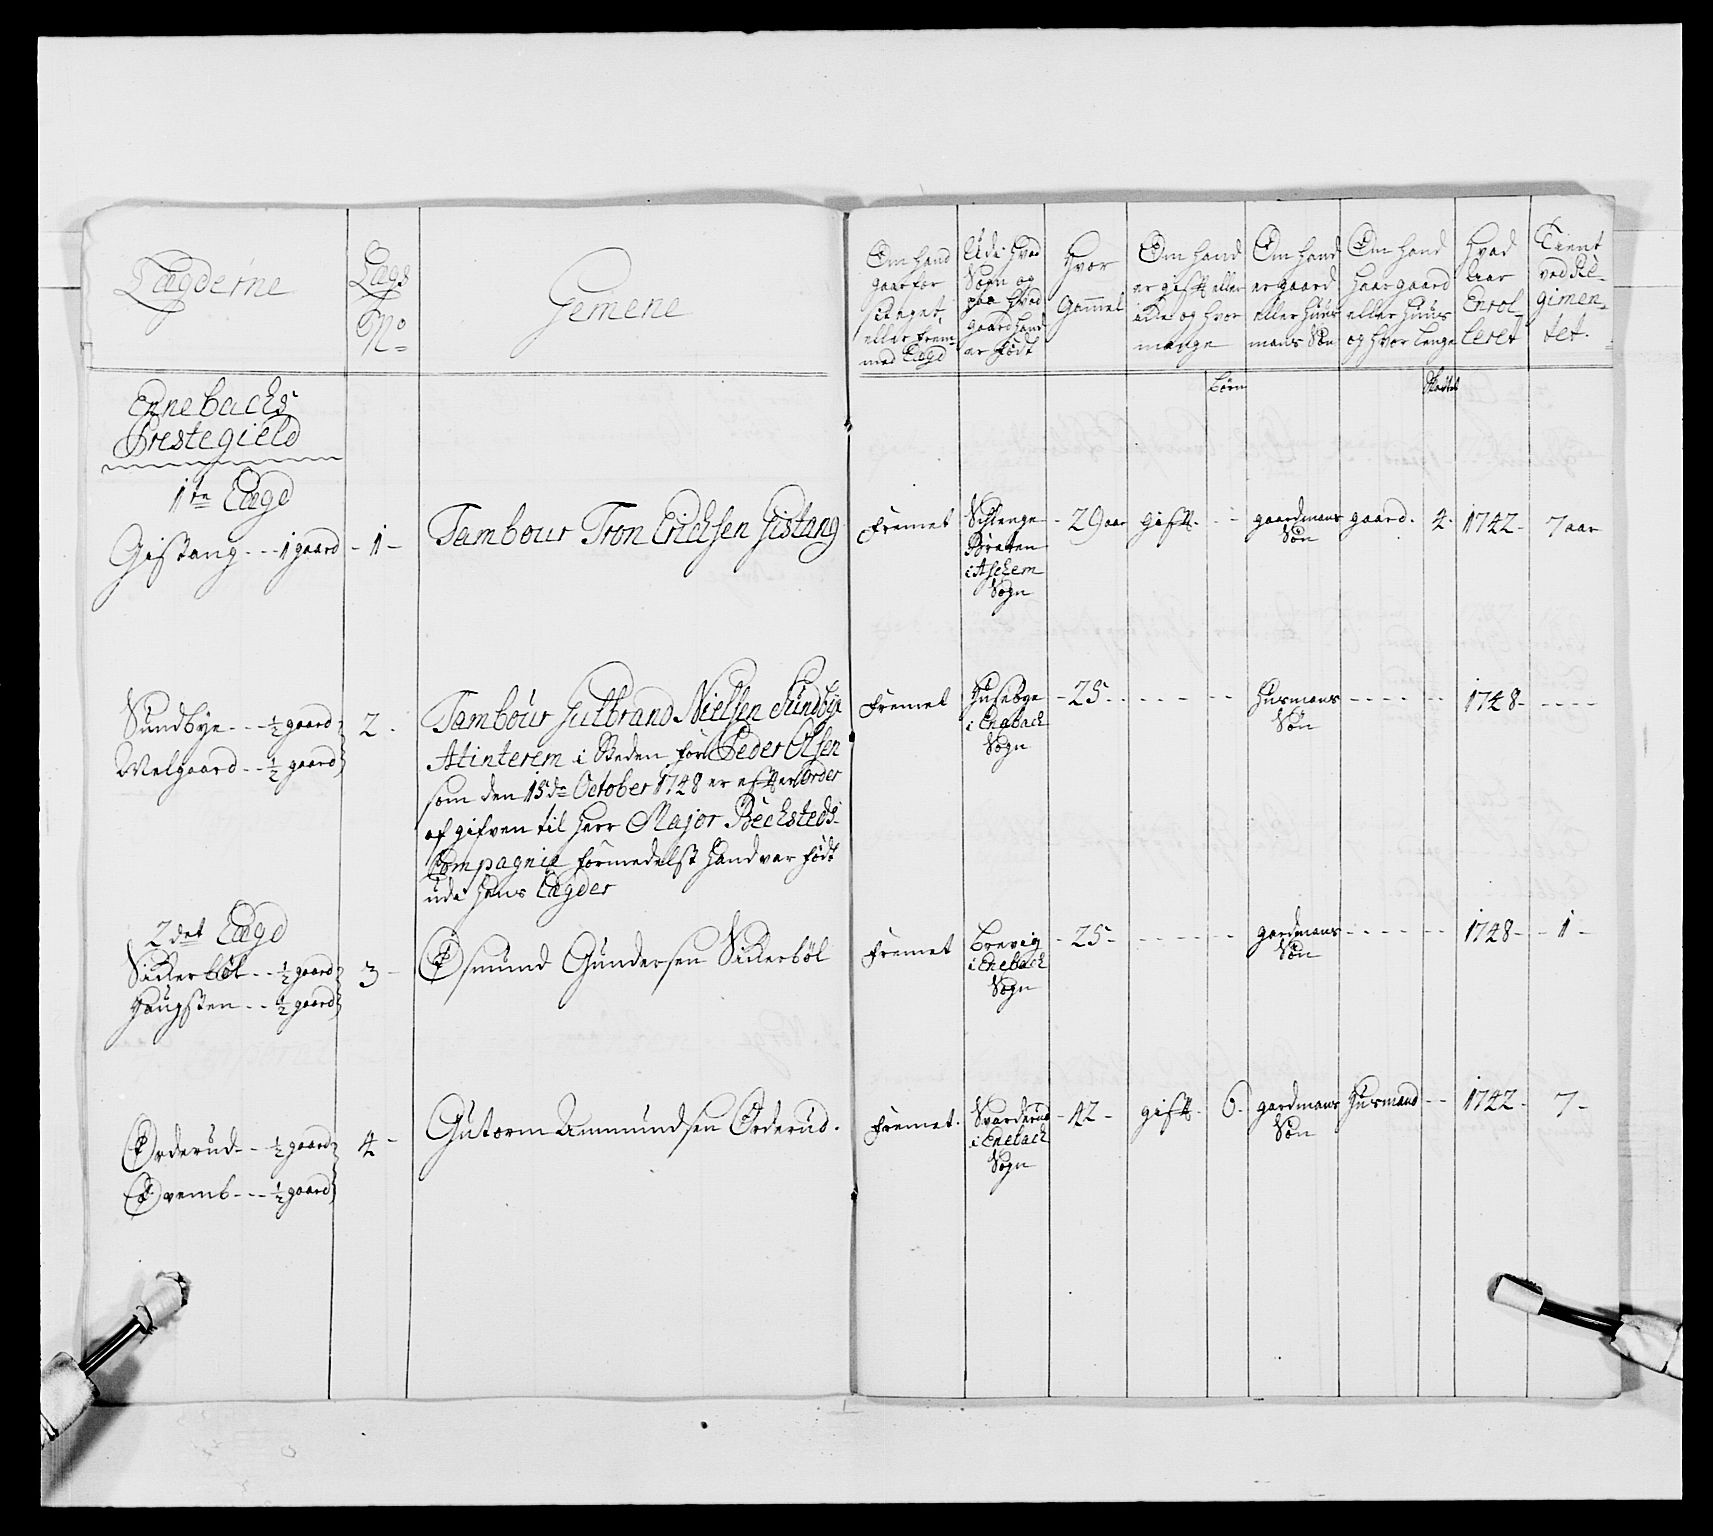 Lægderne
Lægs
No
Gemene
Om hand
gaar for
sleaget,
eller frem
med Lægd
Udi hvad
Sogn og
paa hvad
gaard hand
er Födt
Hvor
Gammel
Om hand
er gift eller
icke og hvor
mange
Börn
Om hand
er gaard
eller huus
mans Sön
Om hand
haar gaard
eller huus
og hvor Lenge
Hvad
Aar
Enrol-
leret
Tient
ved Re-
gimen-
tet.
Ennebachs
Prestegield
1te Lægd
Gistang - - - 1 gaard - 1 - Tambour Tron Erichsen Gistang
fremet
i Aschem
Sogn
- 29 aar gift. - - gaardmans Sön gaard. 4. 1742 - 7 aar
Sundbye - - - ½ gaard
Melgaard - - ½ gaard
2. Tambour Gulbrand Nielsen Sundbye
Atinterim i Steden for Peder Olsen
som den 15de October 1748 er efter Order
afgifven til Herr Major Becksteds
Compagnie formedelst hand var födt
udi hans Lægder
fremet
Husebye
i Enebach
Sogn
- 25 - - - - Husmans Sön - - - - 1748 - - - -
2det Lægd
Sickerböl - - ½ gaard
Haugsten - - ½ gaard
3 - Osmund Gundersen Sickerböl
fremet
Brevig
i Enebach
Sogn
- 25 - - - - - gardmans Sön - - - - 1748 - - 1 -
Orderud - - ½ gaard
Ovemb - - - ½ gaard
4 - Gutorm Ammundsen Orderud.
fremet.
Svarderud
i Enebach
Sogn
- 42 - gift - 6. gardmans Sön Husmand - - 1742 - 7 -